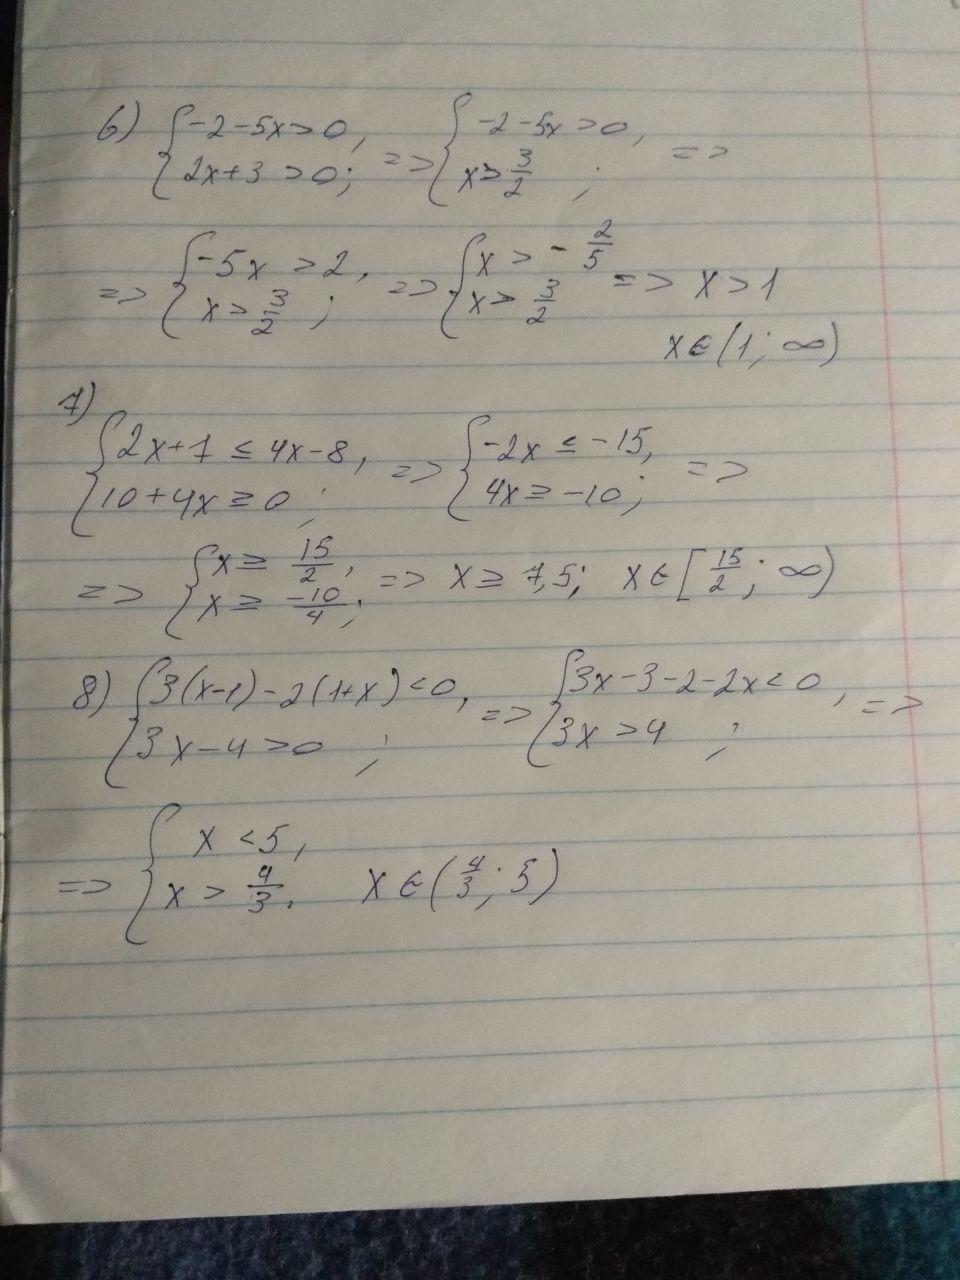 6) { -2-5x>0, 2x+3>0; => { -2-5x>0, x>3/2; =>
=> { -5x>2, x>3/2; => { x>-2/5 x>3/2 => x>1
x∈(1;∞)
7)
{ 2x+7≤4x-8, 10+4x≥0; => { -2x≤-15, 4x≥-10; =>
=> { x≥15/2, x≥-10/4; => x≥7,5; x∈[15/2;∞)
8) { 3(x-1)-2(1+x)<0, 3x-4>0; => { 3x-3-2-2x<0, 3x>4; =>
=> { x<5, x>4/3. x∈(4/3;5)